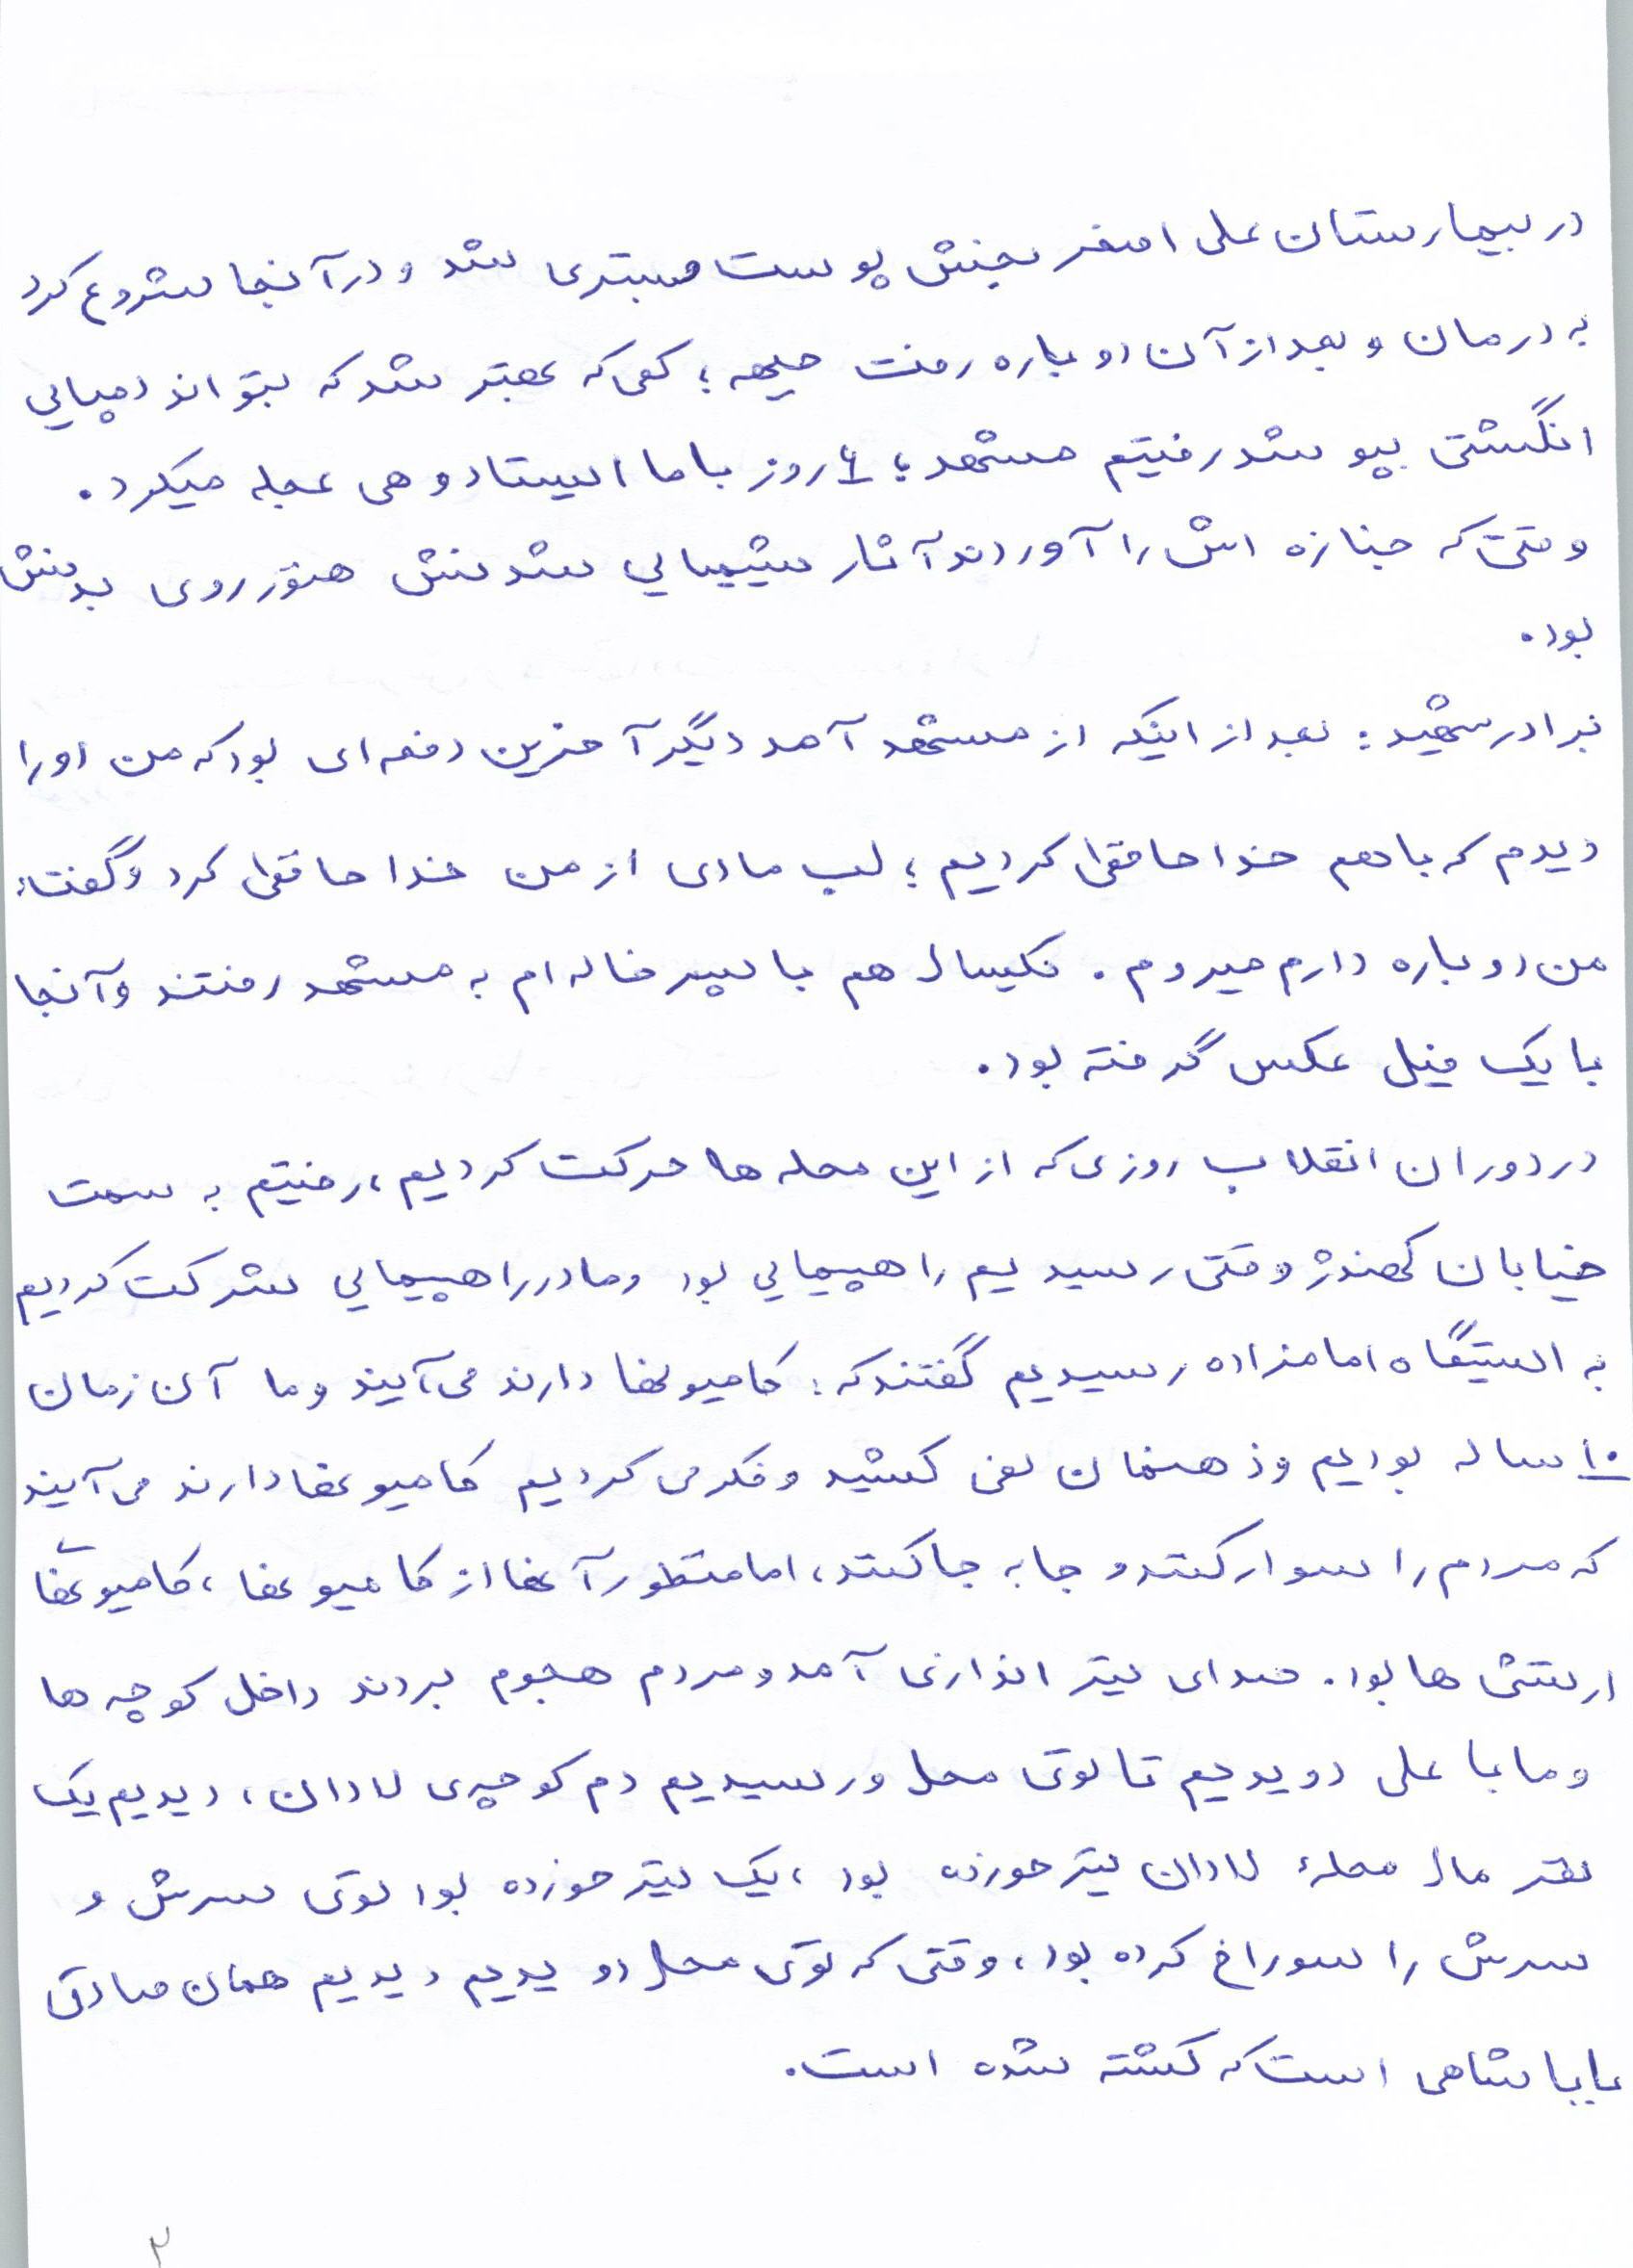 در بیمارستان علی اصغر بخش پوست بستری شد و در آنجا شروع کرد
به درمان و بعد از آن دوباره رفت جبهه؛ کمی که بهتر شد که بتواند دمپایی
انگشتی بپوشد رفتیم مشهد؛ ۶ روز با ما ایستاد و هی عجله میکرد.
وقتی که جنازه اش را آوردند آثار شیمیایی شدنش هنوز روی بدنش
بود.
برادر شهید: بعد از اینکه از مشهد آمد دیگر آخرین دفعه ای بود که من او را
دیدم که با هم خداحافظی کردیم؛ لب مادی از من خداحافظی کرد و گفت:
من دوباره دارم میروم. یکسال هم با پسر خاله ام به مشهد رفتند و آنجا
با یک فیل عکس گرفته بود.
در دوران انقلاب روزی که از این محله ها حرکت کردیم، رفتیم به سمت
خیابان کهندژ وقتی رسیدیم راهپیمایی بود و ما در راهپیمایی شرکت کردیم
به ایستگاه امامزاده رسیدیم گفتند که: کامیونها دارند می آیند و ما آن زمان
۱۰ ساله بودیم و ذهنمان نمی کشید و فکر می کردیم کامیونها دارند می آیند
که مردم را سوار کنند و جا به جا کنند، اما منظور آنها از کامیونها، کامیونهای
ارتشی ها بود. صدای تیر اندازی آمد و مردم هجوم بردند داخل کوچه ها
و ما با علی دویدیم تا توی محل و رسیدیم دم کوچه ی لادان، دیدیم یک
نفر مال محلهٔ لادان تیر خورده بود، یک تیر خورده بود توی سرش و
سرش را سوراخ کرده بود، وقتی که توی محل دویدیم دیدیم همان صادق
باباشاهی است که کشته شده است.
۲